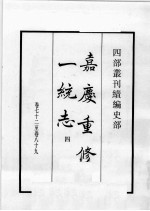 四部叢刊續編史部
嘉慶重修
一統志 四
卷七十二至卷八十九